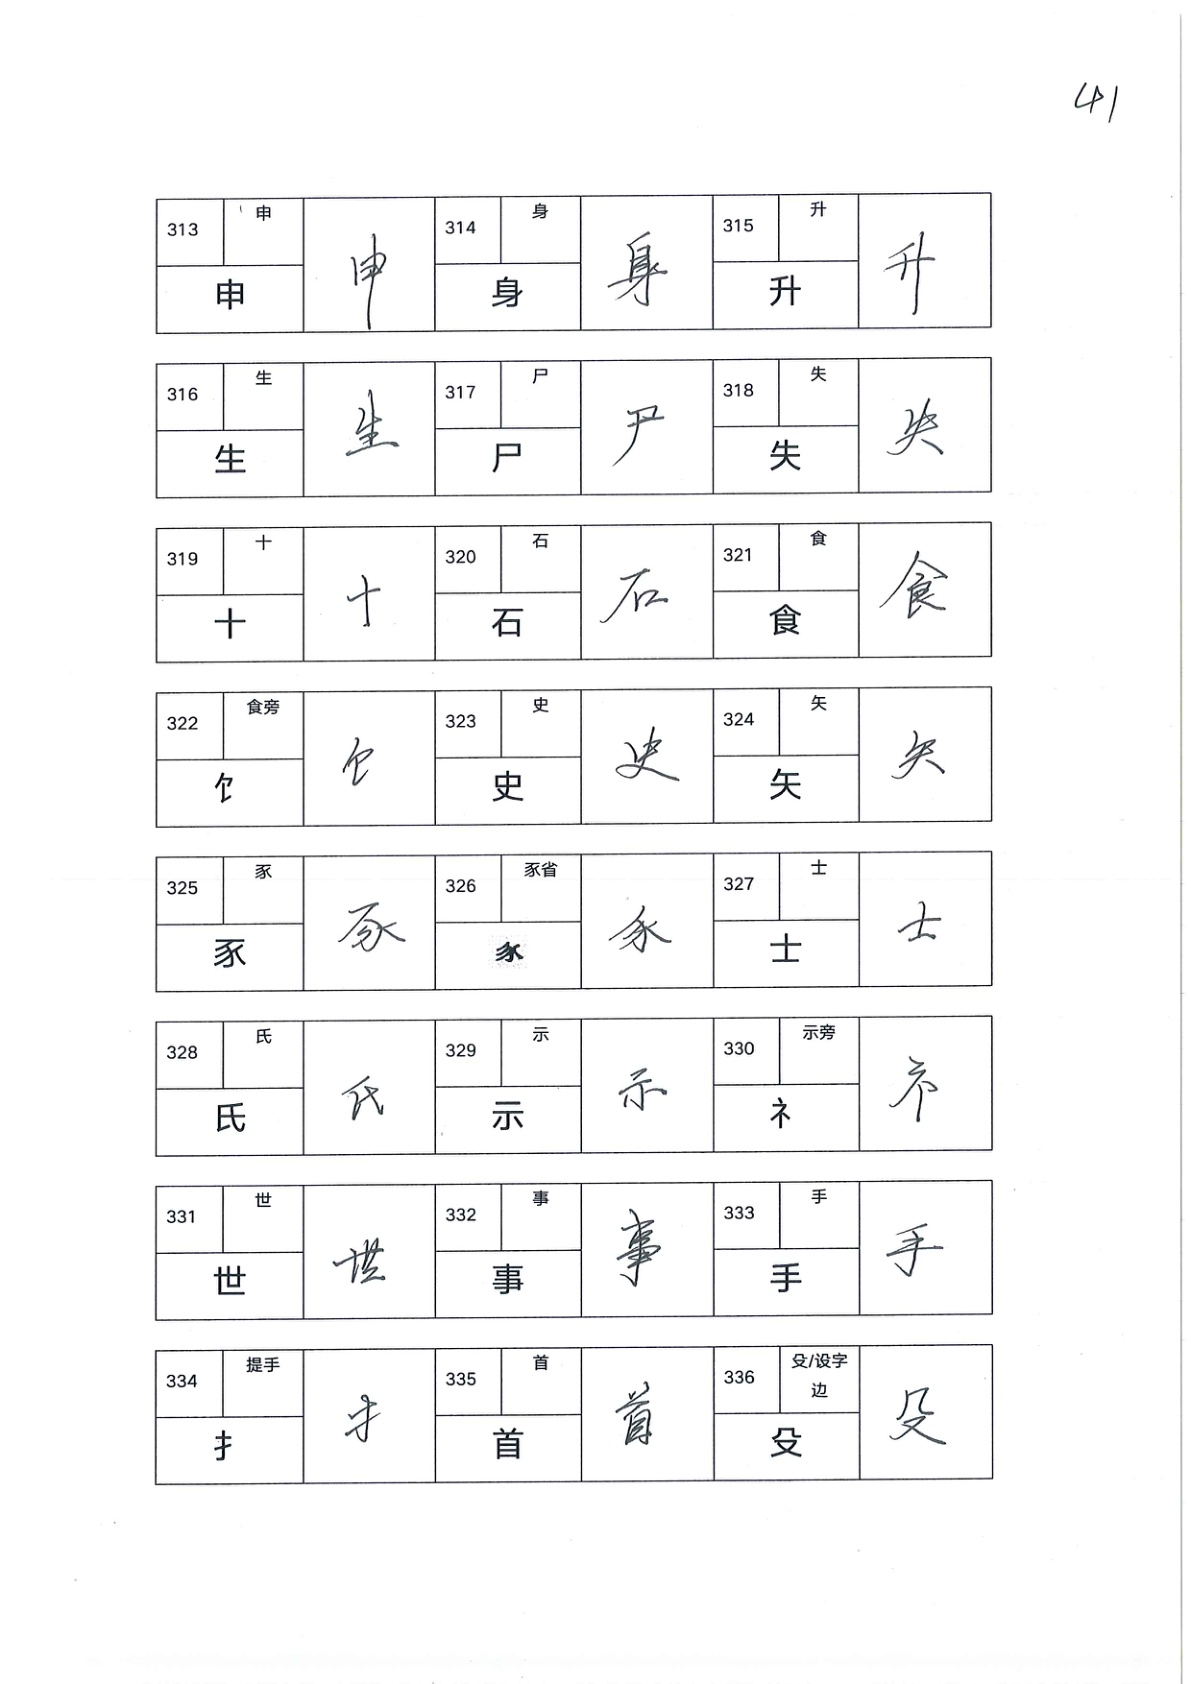 41
313 申 申 314 身 身 315 升 升
申 身 升
316 生 生 317 尸 尸 318 失 失
生 尸 失
319 十 十 320 石 石 321 食 食
十 石 食
322 食旁 饣 323 史 史 324 矢 矢
饣 史 矢
325 豕 豕 326 豕省 327 士 士
豕 士
328 氏 氏 329 示 示 330 示旁 礻
氏 示 礻
331 世 世 332 事 事 333 手 手
世 事 手
334 提手 扌 335 首 首 336 殳/设字边 殳
扌 首 殳